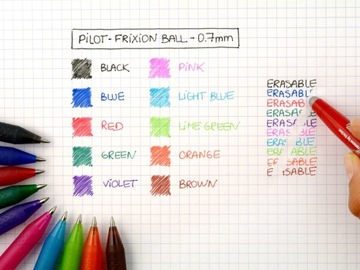 PILOT-FRIXION BALL-0.7mm
BLACK
BLUE
RED
GREEN
VIOLET
PINK
LIGHT BLUE
LIME GREEN
ORANGE
BROWN
ERASABLE
ERASABL
ERASAB
ERASA
ERAS LE
ERAS LE
ERA BLE
ER ABLE
ER SABLE
E SABLE